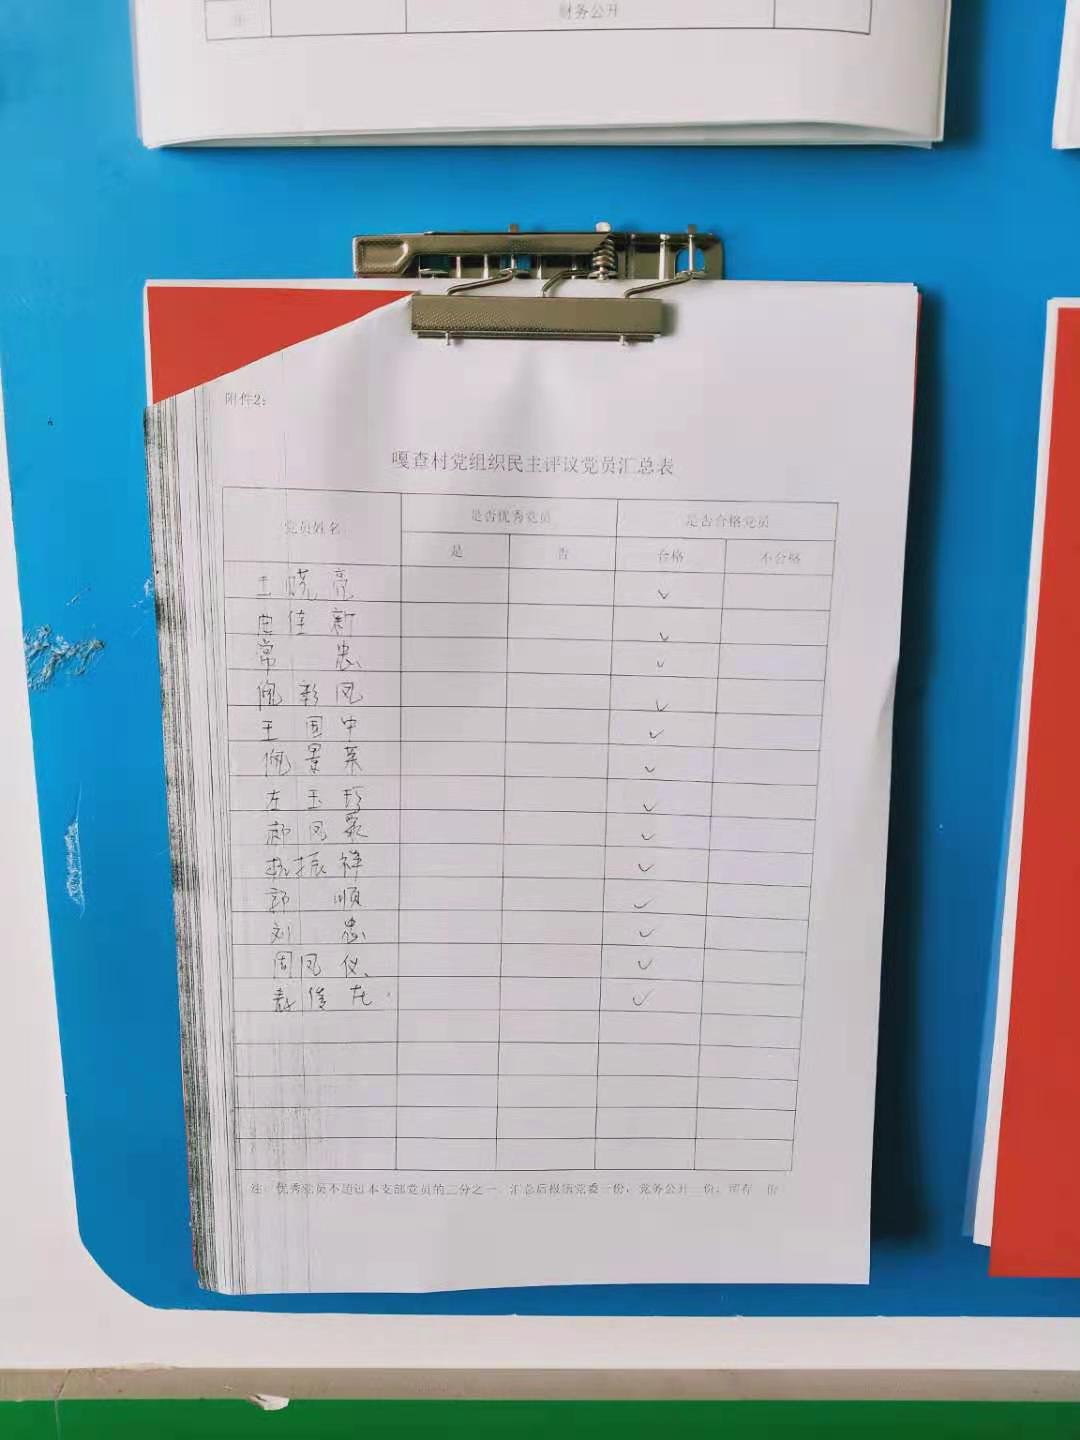 财务公开
附件2:
嘎查村党组织民主评议党员汇总表
党员姓名 是否优秀党员 是否合格党员
是 否 合格 不合格
王晓亮 ✓
佳新 ✓
常忠 ✓
彩凤 ✓
王国中 ✓
景 ✓
左玉珍 ✓
郝凤 ✓
振祥 ✓
郭顺 ✓
刘忠 ✓
周凤仪 ✓
✓
注：优秀党员不超过本支部党员的三分之一，汇总后报镇党委一份，党务公开一份，